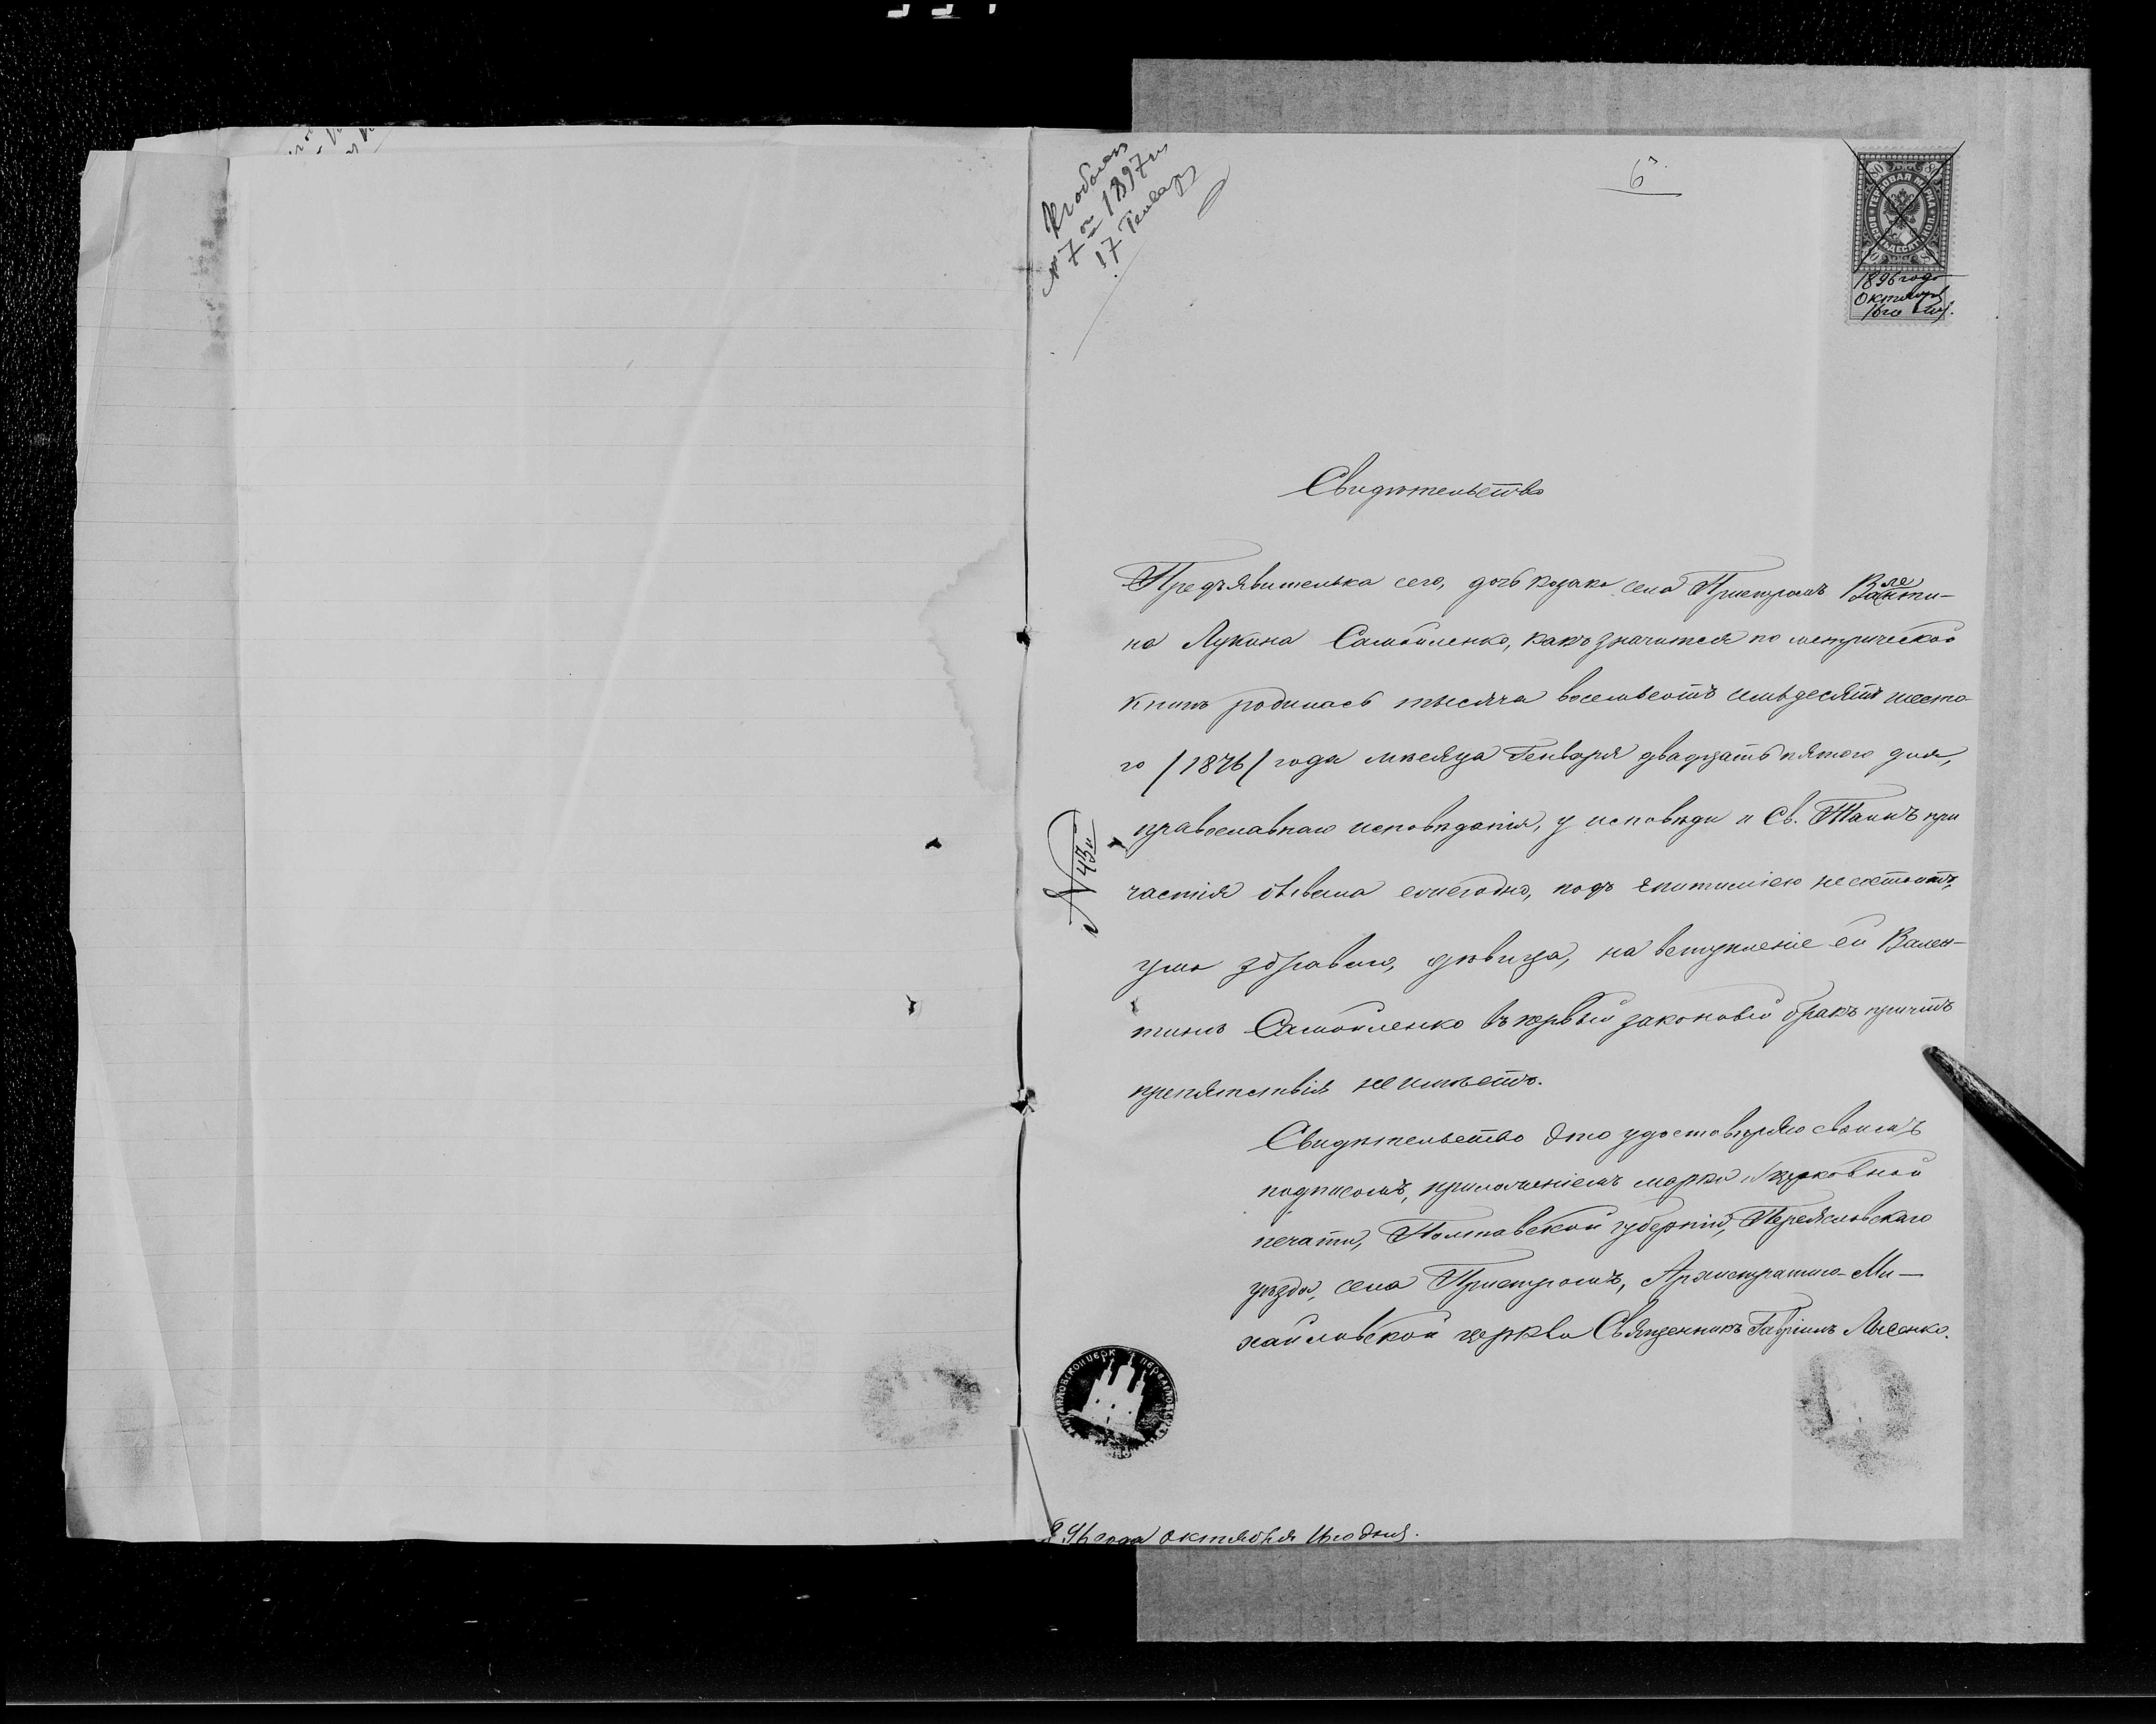 № 7 1897
17 Генвар
6
ГЕРБОВАЯ МАРКА
1896 года
Октября
16го дня.
Свидѣтельство
Предъявителька сего, дочь козака села Пристромъ Валенти-
на Лукина Самойленко, какъ значится по метрической
книгѣ родилась тысяча восемьсотъ семьдесятъ шесто-
го /1876/ года мѣсяца Генваря двадцать пятого дня,
православнаго исповѣданія, у исповѣди и Св. Таинъ при
частія бывала ежегодно, подъ епитиміею не состоитъ,
ума здраваго, дѣвица, на вступленіе ей Вален-
тинѣ Самойленко въ первый законовій бракъ причтъ
препятствія не имѣетъ.
Свидѣтельство это удостовѣряю своимъ
подписомъ, приложеніемъ марки и церковной
печати, Полтавской губерніи, Переясловскаго
уѣзда, села Пристромъ, Архистратиго-Ми-
хайловской церкви Священникъ Гавріилъ Лысенко.
№ 43й
96 года октября 16го дня.